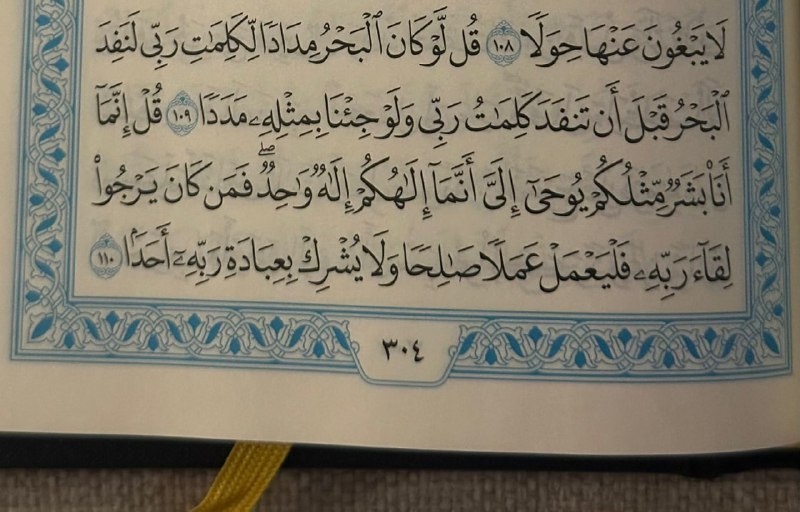 لَا يَبْغُونَ عَنْهَا حِوَلًا ١٠٨ قُل لَّوْ كَانَ ٱلْبَحْرُ مِدَادًا لِّكَلِمَٰتِ رَبِّى لَنَفِدَ
ٱلْبَحْرُ قَبْلَ أَن تَنفَدَ كَلِمَٰتُ رَبِّى وَلَوْ جِئْنَا بِمِثْلِهِۦ مَدَدًا ١٠٩ قُلْ إِنَّمَآ
أَنَا۠ بَشَرٌ مِّثْلُكُمْ يُوحَىٰٓ إِلَىَّ أَنَّمَآ إِلَٰهُكُمْ إِلَٰهٌ وَٰحِدٌ ۖ فَمَن كَانَ يَرْجُوا۟
لِقَآءَ رَبِّهِۦ فَلْيَعْمَلْ عَمَلًا صَٰلِحًا وَلَا يُشْرِكْ بِعِبَادَةِ رَبِّهِۦٓ أَحَدًۢا ١١٠
٣٠٤